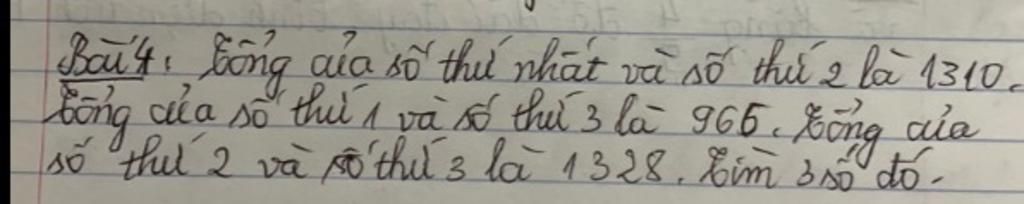 Bài 4: Tổng của số thứ nhất và số thứ 2 là 1310.
Tổng của số thứ 1 và số thứ 3 là 966. Tổng của
số thứ 2 và số thứ 3 là 1328. Tìm 3 số đó.